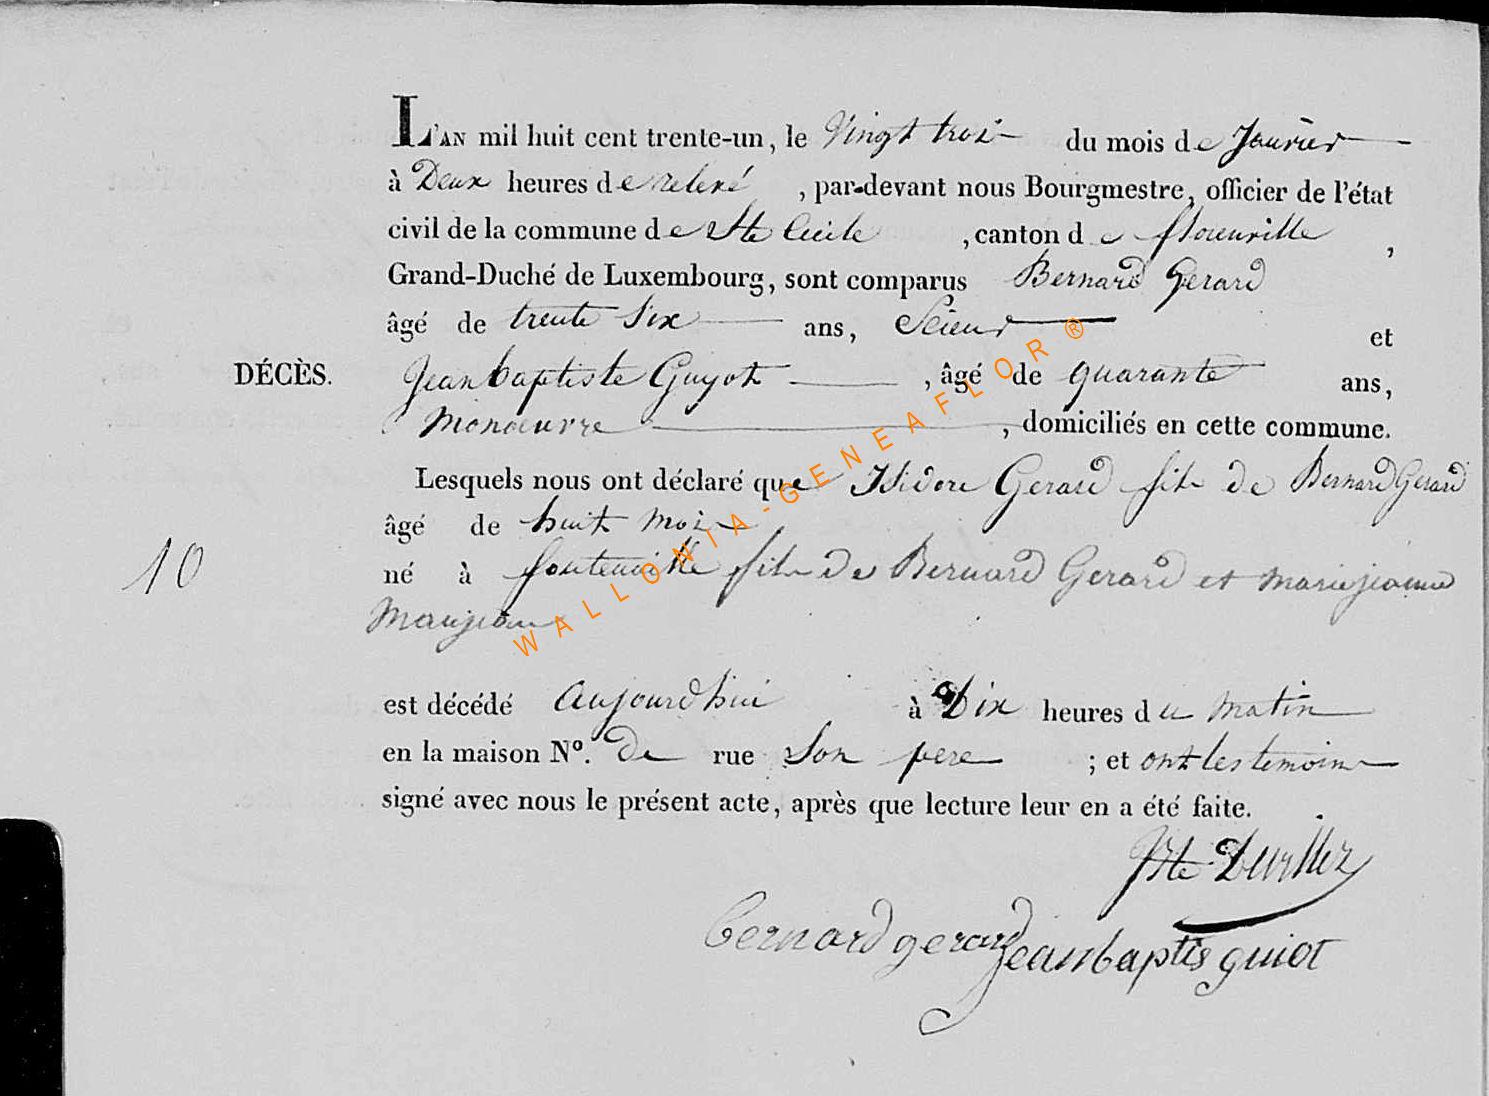 L'AN mil huit cent trente-un, le Vingt trois du mois de Janvier
à Deux heures de relevé, par-devant nous Bourgmestre, officier de l'état
civil de la commune de Ste Cecile, canton de florenville,
Grand-Duché de Luxembourg, sont comparus Bernard Gerard
âgé de trente Six ans, Scieur et
DÉCÈS. Jean baptiste Guyot, âgé de quarante ans,
Manoeuvre, domiciliés en cette commune.
Lesquels nous ont déclaré que Isidore Gerard fils de Bernard Gerard
âgé de huit mois
10 né à fontenaille fils de Bernard Gerard et marie jeanne
Maujean
est décédé aujourd'hui à Dix heures du matin
en la maison N°. De rue Son pere ; et ont les temoins
signé avec nous le présent acte, après que lecture leur en a été faite.
bernard gerard jeanbaptis guiot
WALLONIA-GENEAFLOR ®